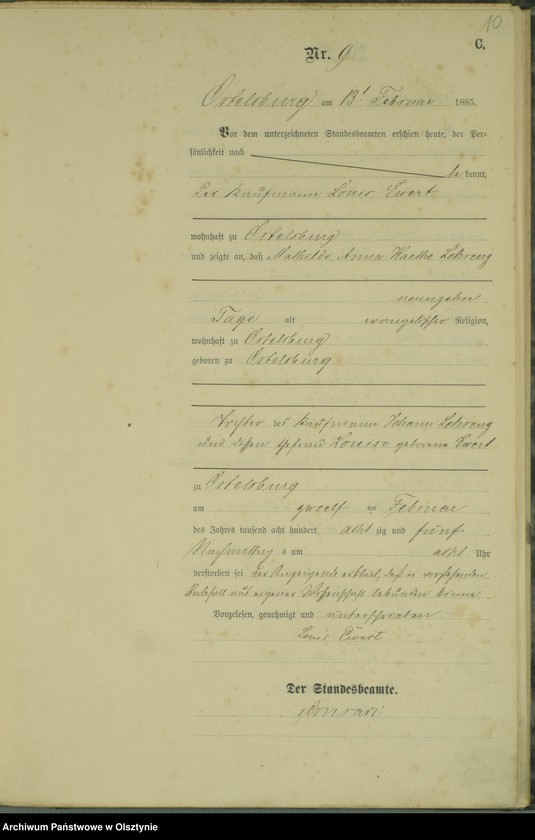 10
C.
Nr. 9
Ortelsburg am 13ten Februar 1885.
Vor dem unterzeichneten Standesbeamten erschien heute, der Per-
sönlichkeit nach
be kannt,
der Kaufmann Louis Ewert
wohnhaft zu Ortelsburg
und zeigte an, daß Mathilde Anna Lohrenz
neunzehn
Tage alt evangelischer Religion,
wohnhaft zu Ortelsburg
geboren zu Ortelsburg
Tochter des Kaufmann Johann Lohrenz
und dessen Ehefrau Louise geborene Ewert
zu Ortelsburg
am zwoelf ten Februar
des Jahres tausend acht hundert acht zig und fünf
Nachmittags um acht Uhr
verstorben sei der Anzeigende erklärt, daß er vorstehenden
Sterbefall aus eigener Wissenschaft bekunden könne.
Vorgelesen, genehmigt und unterschrieben
Louis Ewert
Der Standesbeamte.
Archiwum Państwowe w Olsztynie